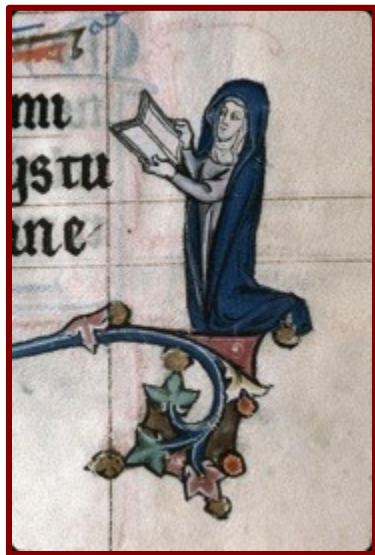 mi
ystu
ine